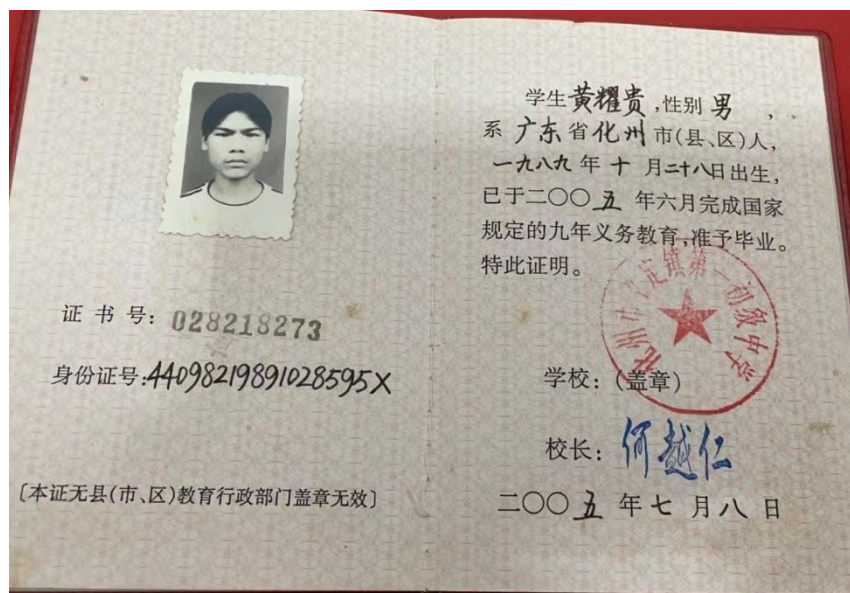 证书号：028218273
身份证号：44098219891028595X
〔本证无县(市、区)教育行政部门盖章无效〕
学生黄耀贵，性别男，
系广东省化州市(县、区)人，
一九八九年十月二十八日出生，
已于二〇〇五年六月完成国家
规定的九年义务教育，准予毕业。
特此证明。
镇第一初级中学
学校：(盖章)
校长：何越仁
二〇〇五年七月八日